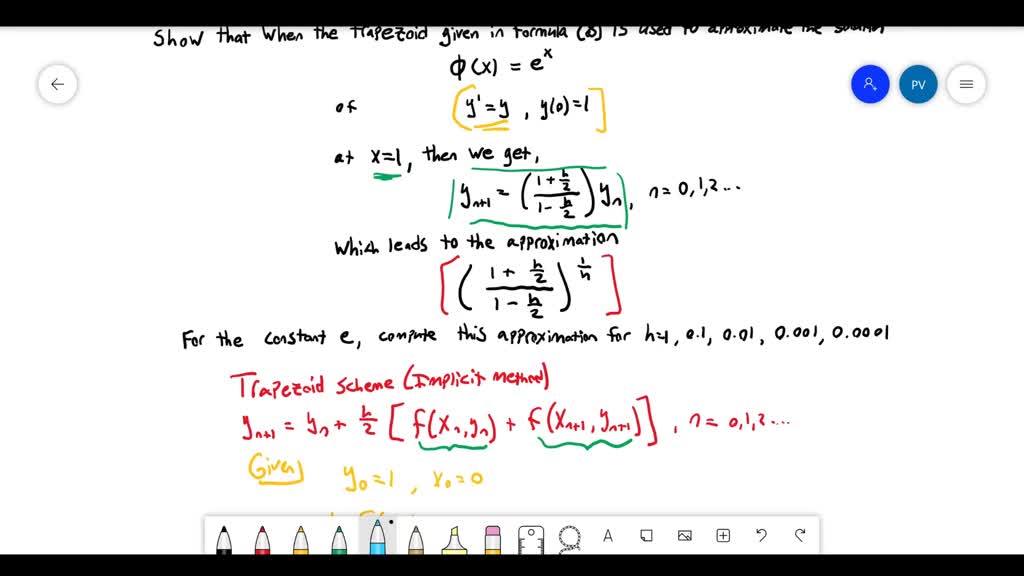 Show that when the trapezoid given in formula (8) is used to
ϕ(x) = e^x
of (y' = y, y(0)=1]
PV
at x=1, then we get,
y_{n+1} = ((1 + h/2)/(1 - h/2)) y_n, n = 0,1,2...
Which leads to the approximation
[((1 + h/2)/(1 - h/2))^{1/h}]
For the constant e, compute this approximation for h=1, 0.1, 0.01, 0.001, 0.0001
Trapezoid scheme (Implicit method)
y_{n+1} = y_n + h/2 [f(x_n, y_n) + f(x_{n+1}, y_{n+1})], n = 0,1,2...
Given
y_0 = 1, x_0 = 0
A